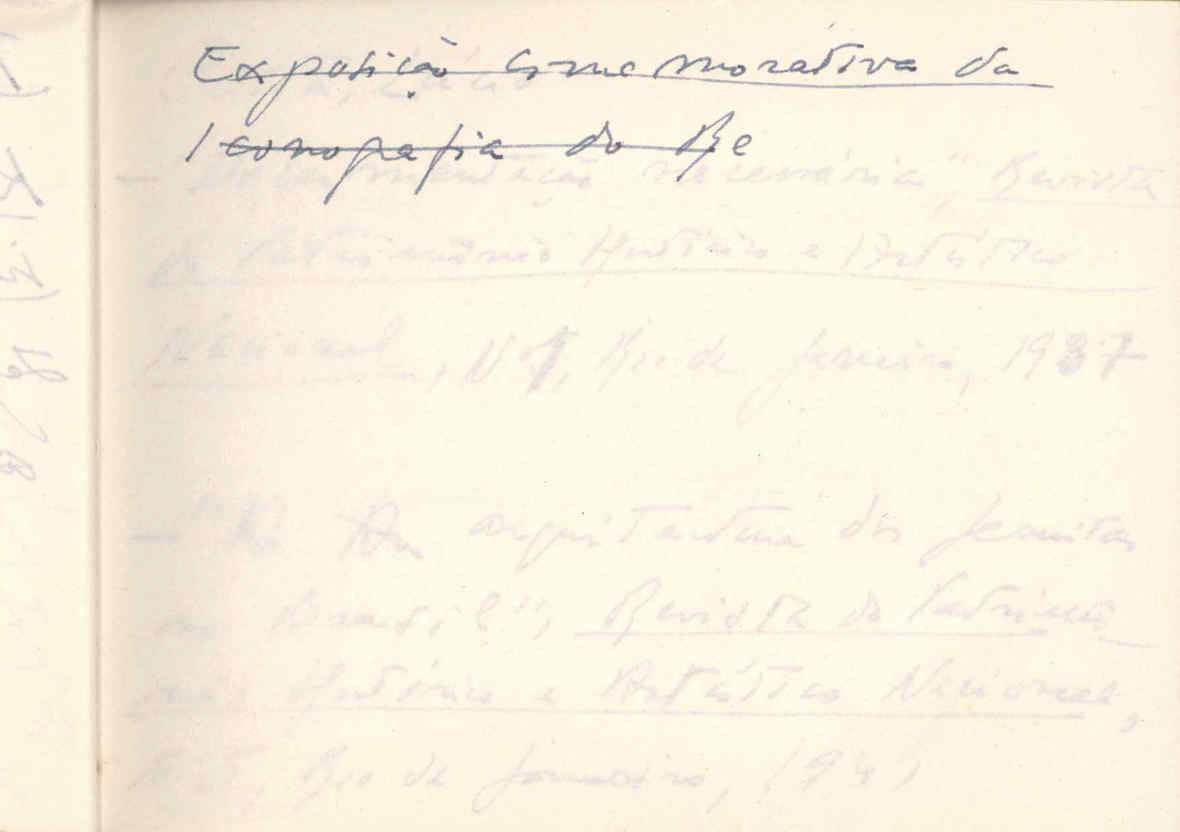 Exposição Comemorativa da
Iconografia do
— "Documentação necessária", Revista
do Patrimônio Histórico e Artístico
Nacional, Nº 1, Rio de Janeiro, 1937
— "A arquitetura dos Jesuitas
no Brasil", Revista do Patrimô-
nio Histórico e Artístico Nacional,
Rio de Janeiro, 1941